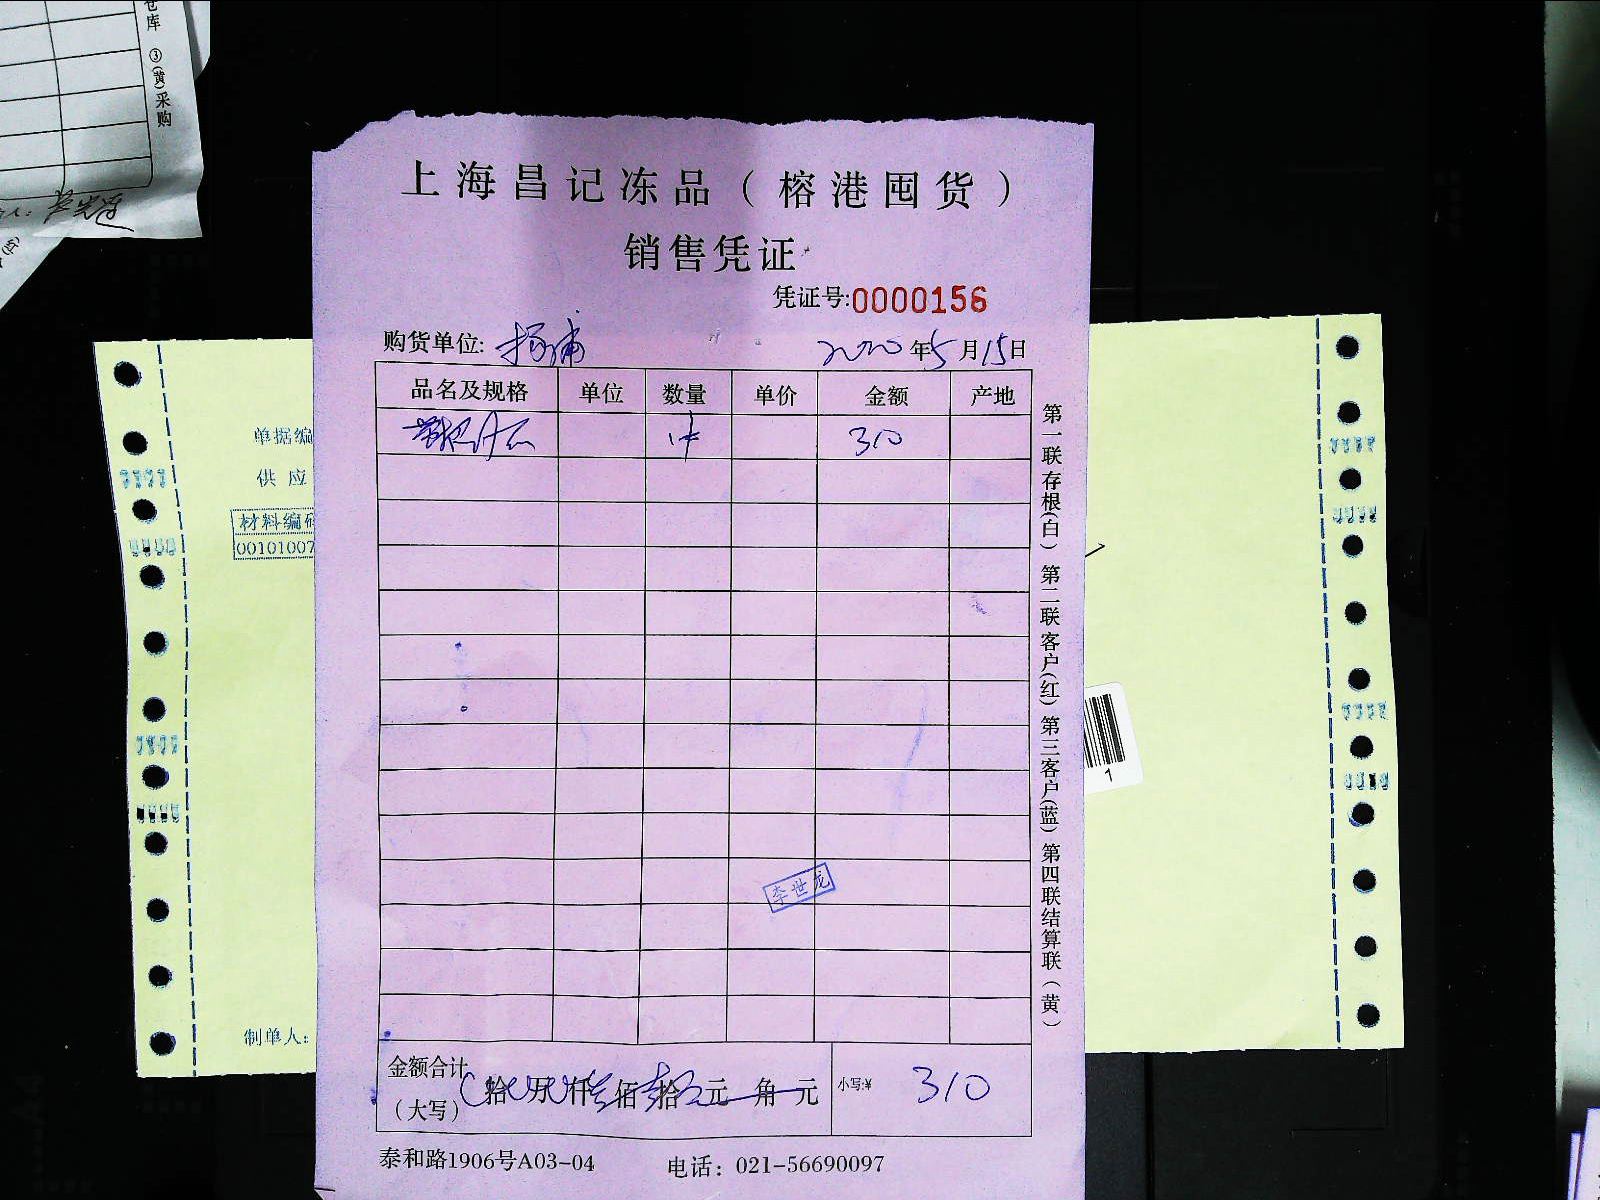 仓库 ③(黄)采购
上海昌记冻品（榕港囤货）
销售凭证
凭证号:0000156
购货单位: 杨浦 2020年5月15日
品名及规格 单位 数量 单价 金额 产地
1件 310
第一联存根(白) 第二联客户(红) 第三客户(蓝) 第四联结算联(黄)
李世龙
金额合计
(大写) 拾 万 仟 佰 拾 元 角 元 小写:¥ 310
泰和路1906号A03-04 电话：021-56690097
单据编
供应
材料编码
00101007
制单人:
1